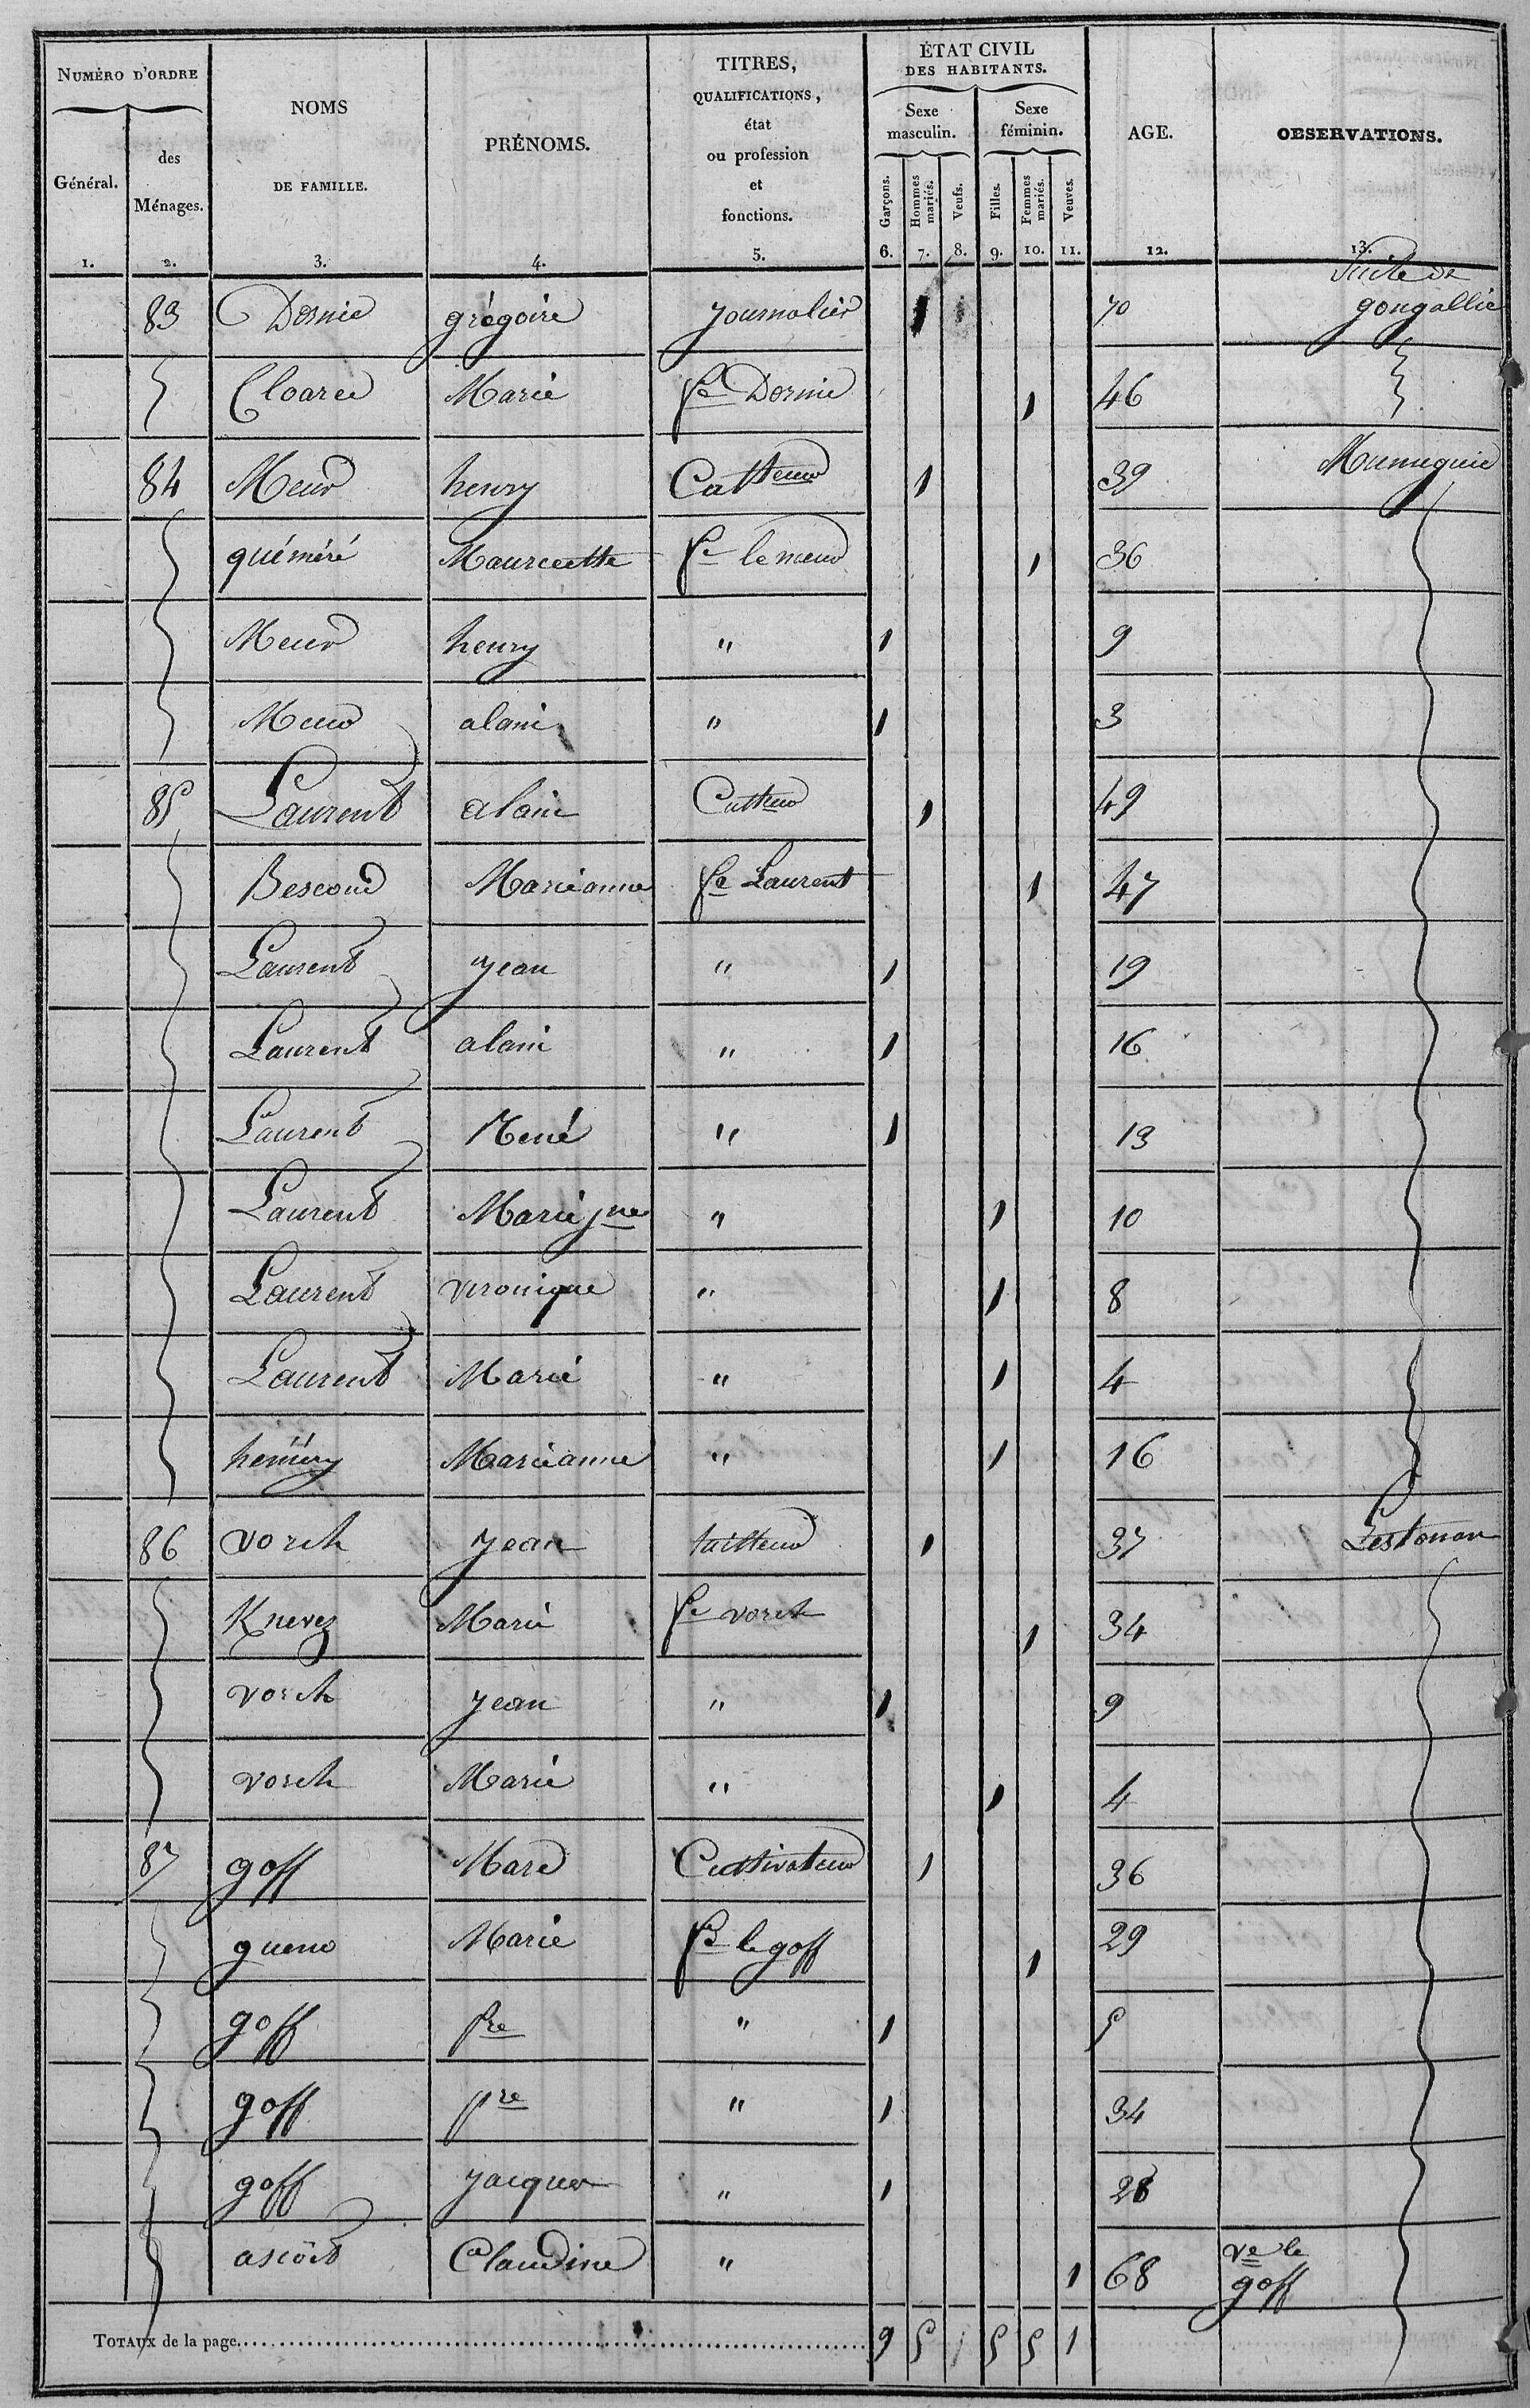 NUMÉRO D'ORDRE
Général.
des Ménages.
NOMS DE FAMILLE.
PRÉNOMS.
TITRES, QUALIFICATIONS, état ou profession et fonctions.
ÉTAT CIVIL DES HABITANTS.
Sexe masculin.
Sexe féminin.
Garçons.
Hommes mariés.
Veufs.
Filles.
Femmes mariés.
Veuves.
AGE.
OBSERVATIONS.
1. 2. 3. 4. 5. 6. 7. 8. 9. 10. 11. 12. 13.
Suite de
83 Dornic grégoire journalier 1 70 gougallic
Cloarec Marie fe Dornic 1 46
84 Meur henry Catteur 1 39
quéméré Mauricette fe le meur 1 36
Meur henry " 1 9
Meur alain " 1 3
85 Laurent alain Cutteur 1 49
Bescond Marieanne fe Laurent 1 47
Laurent jean " 1 19
Laurent alain " 1 16
Laurent René " 1 13
Laurent Marie jne " 1 10
Laurent veronique " 1 8
Laurent Marie " 1 4
heméry Marieanne " 1 16
86 vorch jean tailleur 1 37 Lestonan
Knevez Marie fe vorch 1 34
vorch jean " 1 9
vorch Marie " 1 4
87 goff Marc Cultivateur 1 36
gueno Marie fe le goff 1 29
goff pre " 1 5
goff pre " 1 34
goff jacques " 1 28
ascoët Claudine " 1 68 ve le
goff
TOTAUX de la page 9 5 / 5 5 1